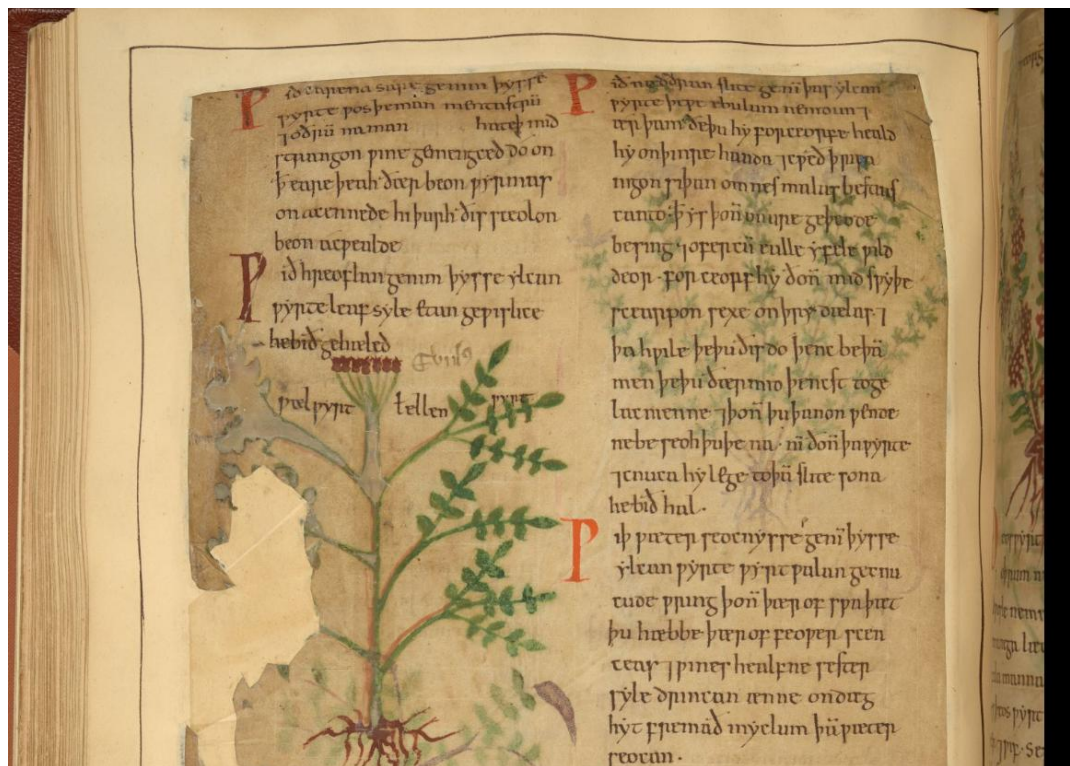 Ƿið earena sare genim þysse
ƿyrte ƿos þe man mentastrū
⁊ oðrū naman hateþ mid
strangon ƿine gemenged do on
þ̄ eare þeah ðær beon ƿyrmas
on acennede hi þurh ðis sceolon
beon acƿealde
Ƿið hreoflan genim þysse ylcan
ƿyrte leaf syle etan geƿislice
he bið gehæled
ƿælƿyrt ł ellen ƿyrt
Ƿið næddran slite genī þas ylcan
ƿyrte þe ƿe ebulum nemdun ⁊
ær þam ðe þu hy forceorfe heald
hy on þinre handa ⁊ cƿeð þriƿa
nigon siþan omnes malas bestias
canto · þ̄ ys þoñ on ure geþeode
besing ⁊ ofercū ealle yfele ƿild
deor · forceorf hy ðoñ mid sƿyþe
scearpon sexe on þry dælas · ⁊
þa hƿile þe þu ðis do þenc be þā
men þe þu ðær mid þencst to ge
lacnienne ⁊ þoñ þu þanon ƿende
ne beseoh þu þe na · nī ðoñ þa ƿyrte
⁊ cnuca hy lege to þā slite sona
he bið hal ·
Ƿiþ ƿæter seocnysse genī þysse
ylcan ƿyrte ƿyrt ƿalan gecnu
cude ƿring þoñ þær of sƿa þæt
þu hæbbe þær of feoƿer scen
ceas ⁊ ƿines healfne sester
syle drincan ænne on dæg
hyt fremað myclum þā ƿæter
seocan ·